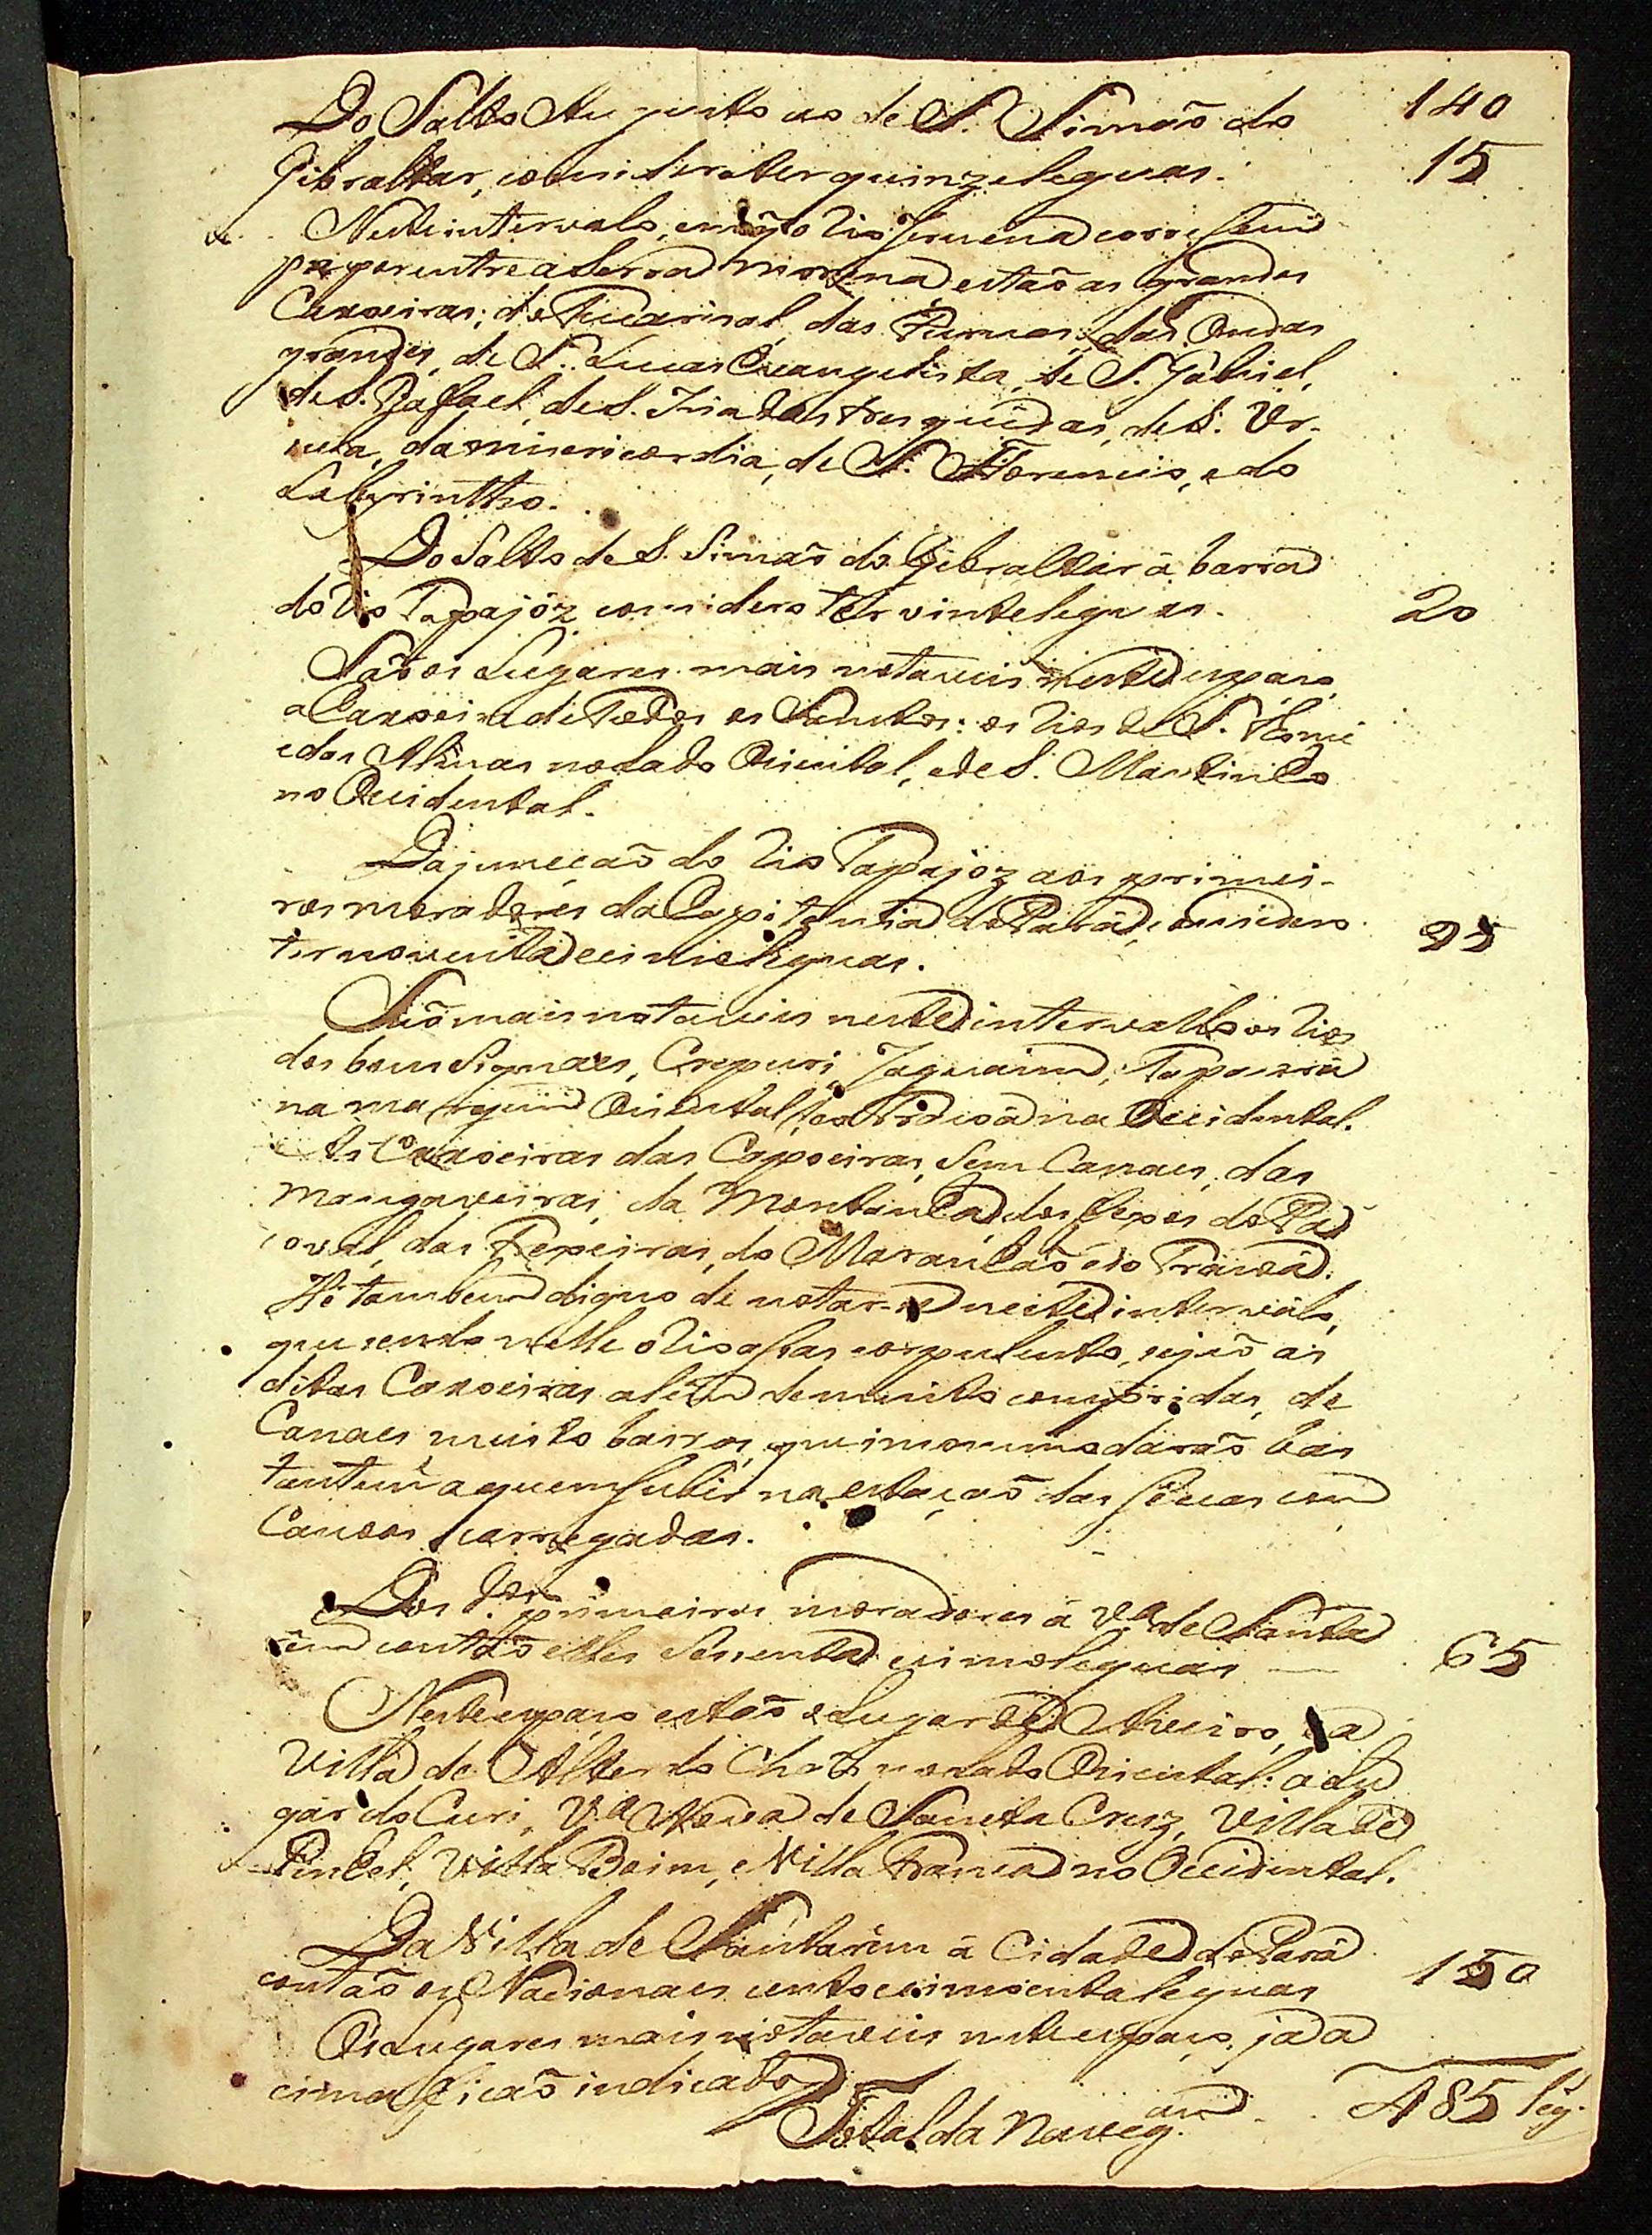 140
Do Salto Augusto ao de S. Simaõ do
Gibraltar, considero ter quinze leguas. 15
Neste intervalo, em q̃ o Rio Juruena corre sem̃
pre por entre a Serra morena estaõ as grandes
Caxoeiras; do Tucarisal, das Furnas, das Ondas
grandes, de S. Lucas Evangelista, de S. Gabriel,
de S. Rafael, de S. Iria das tres quédas, de S. Ur-
sula, da misericordia, de S. Florencio, e do
Labyrinttho.
Do Salto de S. Simaõ do Gibraltar á barra
do Rio Tapajóz considero ter vinte leguas. 20
Saõ os Lugares mais notaveis neste espaço
a Caxoeira de Todos os Santos: os Rios de S. Thomé
e das Almas no lado Oriental, e de S. Martinho
no Occidental.
Da juncçaõ do Rio Tapajóz aos primei-
ros moradores da Capitania do Pará, considero
ter noventa e cinco leguas. 95
Saõ mais notaveis neste intervallo os Rios
dos bons Signaes, Crepuri, Jaguaim, Tapacorá
na margem Oriental, e o na Occidental.
As Caxoeiras das Capoeiras, Sem Canaes, das
mangaveiras, da Montanha, dos Sepos do Pa
coval, das Frexeiras, do Maranhaõ e do
Hé tambem digno de notar-se neste intervalo,
que sendo nelle o Rio assas corpulento, sejaõ as
ditas Caxoeiras alêm de muito compridas, de
Canaes muito baixos, que incommodaraõ bas
tantem.e a quem subir na estaçaõ das sêcas com
Canoas carregadas.
Dos d.os primeiros moradores á V.a de Santa
rêm contaõ elles sessenta e cinco leguas — 65
Neste espaço estaõ o Lugar de Aveiro, e a
Villa de Alter do Chaõ no lado Oriental: o Lu
gar do Curi, V.a Nova de Sancta Cruz, Villa de
Pinhel, Villa Boim, e Villa Franca no Occidental.
Da Villa de Santarêm á Cidade do Pará
contaõ os Nacionaes cento e cincoenta leguas 150
Os Lugares mais notaveis neste espaço, já a
cima ficaõ indicados
Total da Naveg.am . . 485 leg.